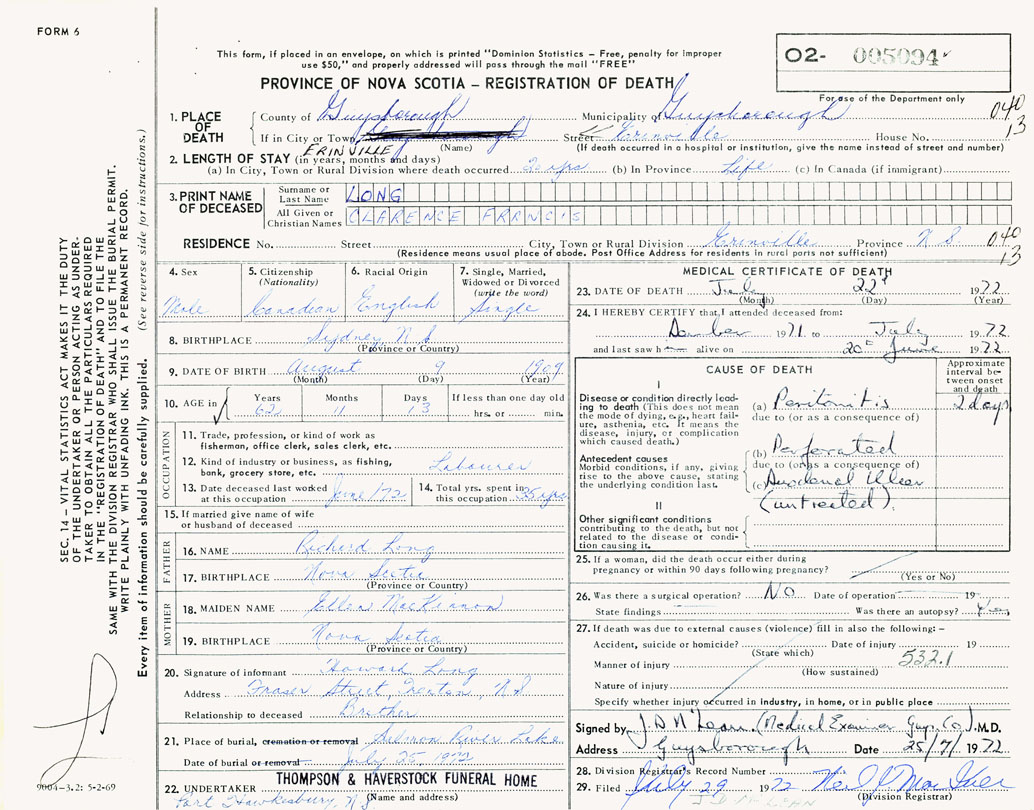 FORM 6
This form, if placed in an envelope, on which is printed "Dominion Statistics – Free, penalty for improper
use $50," and properly addressed will pass through the mail "FREE"
O2- 005094
PROVINCE OF NOVA SCOTIA – REGISTRATION OF DEATH
For use of the Department only
040
13
1. PLACE OF DEATH
County of Guysborough Municipality of Guysborough
If in City or Town Street Erinville House No.
(Name) (If death occurred in a hospital or institution, give the name instead of street and number)
ERINVILLE
2. LENGTH OF STAY (in years, months and days)
(a) In City, Town or Rural Division where death occurred 20 yrs (b) In Province Life (c) In Canada (if immigrant)
3. PRINT NAME OF DECEASED
Surname or Last Name LONG
All Given or Christian Names CLARENCE FRANCIS
RESIDENCE No. Street City, Town or Rural Division Erinville Province N S
040
13
(Residence means usual place of abode. Post Office Address for residents in rural parts not sufficient)
4. Sex
Male
5. Citizenship (Nationality)
Canadian
6. Racial Origin
English
7. Single, Married, Widowed or Divorced (write the word)
Single
8. BIRTHPLACE Sydney N S
(Province or Country)
9. DATE OF BIRTH August 9 1909
(Month) (Day) (Year)
10. AGE in
Years Months Days If less than one day old
62 11 13 hrs. or min.
OCCUPATION
11. Trade, profession, or kind of work as
fisherman, office clerk, sales clerk, etc.
12. Kind of industry or business, as fishing,
bank, grocery store, etc.
Labourer
13. Date deceased last worked
at this occupation June/72
14. Total yrs. spent in
this occupation 35 yrs
15. If married give name of wife
or husband of deceased
FATHER
16. NAME Richard Long
17. BIRTHPLACE Nova Scotia
(Province or Country)
MOTHER
18. MAIDEN NAME Ellen MacKinnon
19. BIRTHPLACE Nova Scotia
(Province or Country)
20. Signature of informant Howard Long
Address Fraser Street, Trenton, N S
Relationship to deceased Brother
21. Place of burial, cremation or removal Salmon River Lake
Date of burial or removal July 25, 1972
THOMPSON & HAVERSTOCK FUNERAL HOME
22. UNDERTAKER
(Name and address)
Port Hawkesbury, N S
MEDICAL CERTIFICATE OF DEATH
23. DATE OF DEATH July 22 1972
(Month) (Day) (Year)
24. I HEREBY CERTIFY that I attended deceased from:
1971 to July 1972
and last saw h alive on 20th June 1972
CAUSE OF DEATH
Approximate interval between onset and death
I
Disease or condition directly leading to death (This does not mean the mode of dying, e.g., heart failure, asthenia, etc. It means the disease, injury, or complication which caused death.)
(a) Peritonitis
2 days
due to (or as a consequence of)
Antecedent causes
Morbid conditions, if any, giving rise to the above cause, stating the underlying condition last.
(b) Perforated
due to (or as a consequence of)
(c) Duodenal Ulcer
(untreated)
II
Other significant conditions
contributing to the death, but not related to the disease or condition causing it.
25. If a woman, did the death occur either during
pregnancy or within 90 days following pregnancy?
(Yes or No)
26. Was there a surgical operation? NO Date of operation 19
State findings Was there an autopsy? Yes
27. If death was due to external causes (violence) fill in also the following:–
Accident, suicide or homicide? Date of injury 19
(State which)
532.1
Manner of injury
(How sustained)
Nature of injury
Specify whether injury occurred in industry, in home, or in public place
Signed by J. D. McLean. (Medical Examiner Guys. Co.) M.D.
Address Guysborough Date 25/7/1972
28. Division Registrar's Record Number
29. Filed July 29 1972
(Division Registrar)
J D McLEAN
SEC. 14 – VITAL STATISTICS ACT MAKES IT THE DUTY
OF THE UNDERTAKER OR PERSON ACTING AS UNDER-
TAKER TO OBTAIN ALL THE PARTICULARS REQUIRED
IN THE "REGISTRATION OF DEATH" AND TO FILE THE
SAME WITH THE DIVISION REGISTRAR WHO SHALL ISSUE THE BURIAL PERMIT.
WRITE PLAINLY WITH UNFADING INK. THIS IS A PERMANENT RECORD.
Every item of information should be carefully supplied. (See reverse side for instructions.)
9004–3.2: 5-2-69